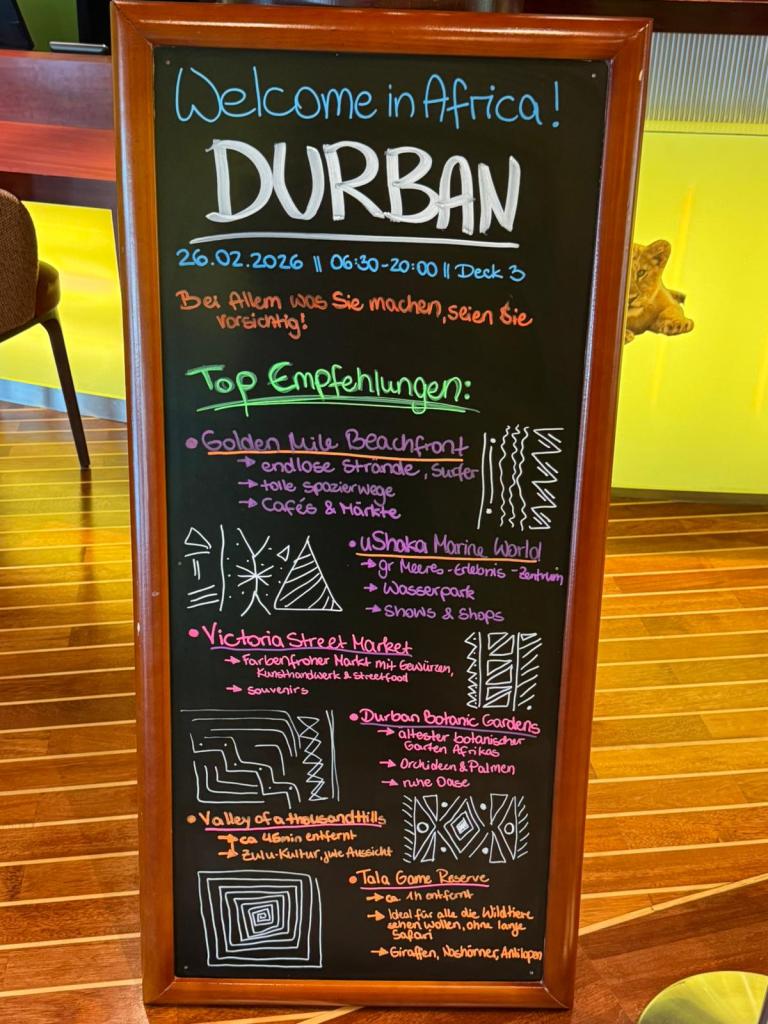 Welcome in Africa!
DURBAN
26.02.2026 || 06:30-20:00 || Deck 3
Bei Allem was Sie machen, seien Sie
vorsichtig!
Top Empfehlungen:
• Golden Mile Beachfront
→ endlose Strände, Surfer
→ tolle Spazierwege
→ Cafés & Märkte
• uShaka Marine World
→ gr Meeres-Erlebnis-Zentrum
→ Wasserpark
→ Shows & Shops
• Victoria Street Market
→ Farbenfroher Markt mit Gewürzen,
Kunsthandwerk & streetfood
→ souvenirs
• Durban Botanic Gardens
→ ältester botanischer
Garten Afrikas
→ Orchideen & Palmen
→ ruhe Oase
• Valley of a thousand Hills
→ ca 45min entfernt
→ Zulu-Kultur, gute Aussicht
• Tala Game Reserve
→ ca. 1h entfernt
→ Ideal für alle die Wildtiere
sehen wollen, ohne lange
Safari
→ Giraffen, Nashörner, Antilopen